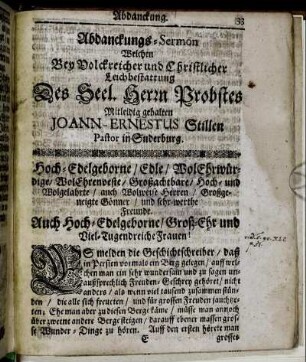 Abdanckung.
33
Abdanckungs-Sermon
Welchen
Bey Volckreicher und Christlicher
Leichbestattung
Des Seel. Herrn Probstes
Mitleidig gehalten
JOANN-ERNESTUS Stillen
Pastor in Suderburg.
Hoch-Edelgeborne / Edle / WolEhrwür-
dige / WolEhrenveste / Großachtbare / Hoch- und
Wolgelahrte / auch Wolweise Herren / Großge-
neigte Gönner / und sehr-werthe
Freunde.
Auch Hoch-Edelgeborne / Groß-Ehr und
Viel-Tugendreiche Frauen!
ES melden die Geschichtschreiber / daß
in Persien vormals ein Berg gelegen / auff wel-
chen man ein sehr wundersam und zu sagen un-
außsprechlich Freuden-Geschrey gehöret / nicht
anders / als wenn viel tausend zusammen stün-
den / die alle sich freueten / und für grossen Freuden jauchze-
ten; Ehe man aber zu diesem Berge käme / müste man annoch
über zweene andere Berge steigen / darauff ebener massen gros-
se Wunder-Dinge zu hören. Auff den ersten hörete man
E
grosses